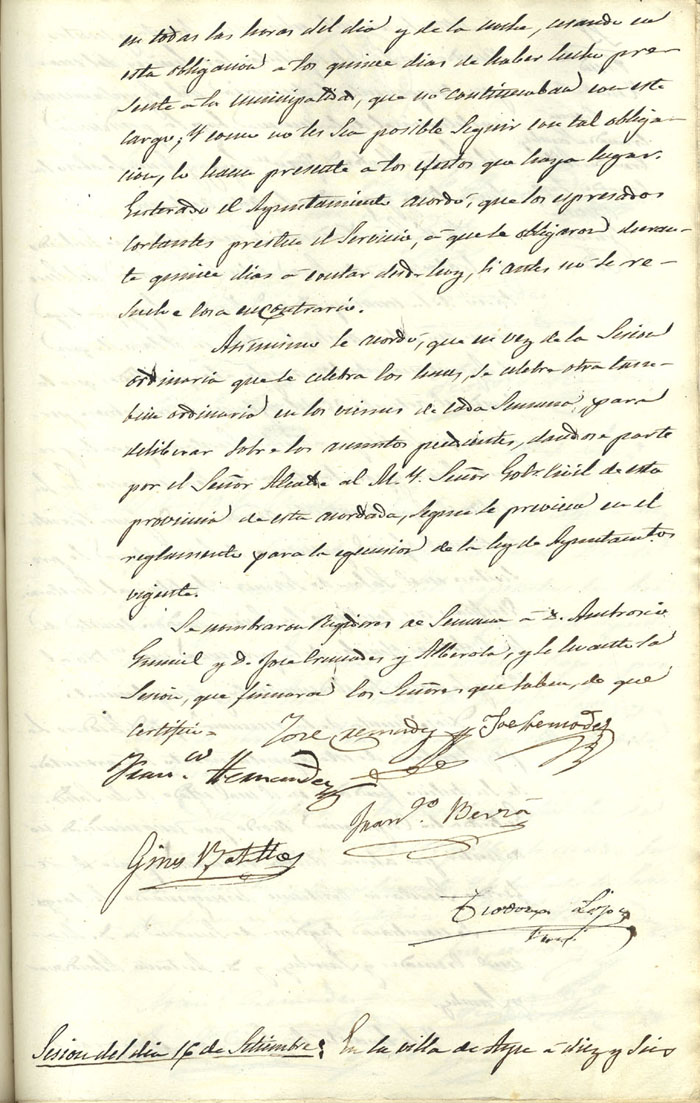 en todas las horas del dia y de la noche, cesando en
esta obligacion a los quince dias de haber hecho pre-
sente a la municipalidad, que no continuaban con este
cargo; y como no les sea posible seguir con tal obliga-
cion, lo hacen presente a los efectos que haya lugar.
Enterado el Ayuntamiento acordó, que los espresados
cortantes presten el servicio, á que se obligaron duran-
te quince dias á contar desde hoy, si antes no se re-
suelve cosa en contrario.
Asimismo se acordó, que en vez de la Sesion
ordinaria que se celebra los lunes, se celebre otra tam-
bien ordinaria en los viernes de cada Semana, para
deliberar sobre los asuntos pendientes, dandose parte
por el Señor Alcalde al M. Y. Señor Gobr. Civil de esta
provincia de esta acordada, segun se previene en el
reglamento para la egecusion de la ley de Ayuntamtos.
vigente.
Se nombraron Regidores de Semana á D. Ambrosio
y D. Jose Cremades y Alberola, y se levantó la
Sesion, que firmaron los Señores que saben, de que
certifico.
Jose Cremades
Franco. Hernandez
Juan Berná
Gines Batlles
Teodoro Lopez
Sesion del dia 16 de Setiembre: En la villa de Aspe á diez y seis